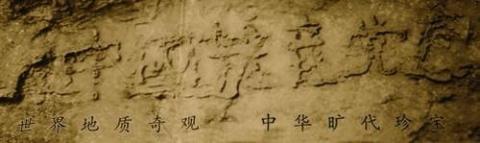 中國共產党亡
世界地质奇观 中华旷代珍宝